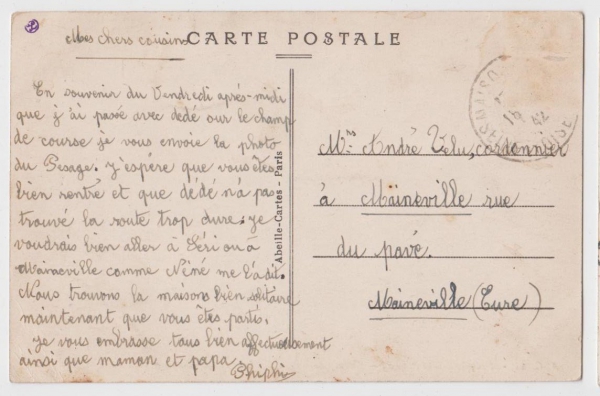 Mes chers cousins
CARTE POSTALE
En souvenir du Vendredi après-midi
que j'ai passé avec dédé sur le champ
de course je vous envoie la photo
du Pesage. J'espère que vous êtes
bien rentré et que dédé n'a pas
trouvé la route trop dure. je
voudrais bien aller à Séri ou à
Maineville comme Néné me l'a dit.
Nous trouvons la maison bien solitaire
maintenant que vous êtes partis.
Je vous embrasse tous bien affectueusement
ainsi que maman et papa.
Phiphi
Abeille-Cartes - Paris
André Velu, cordonnier
à Maineville rue
du pavé.
Maineville (Eure)